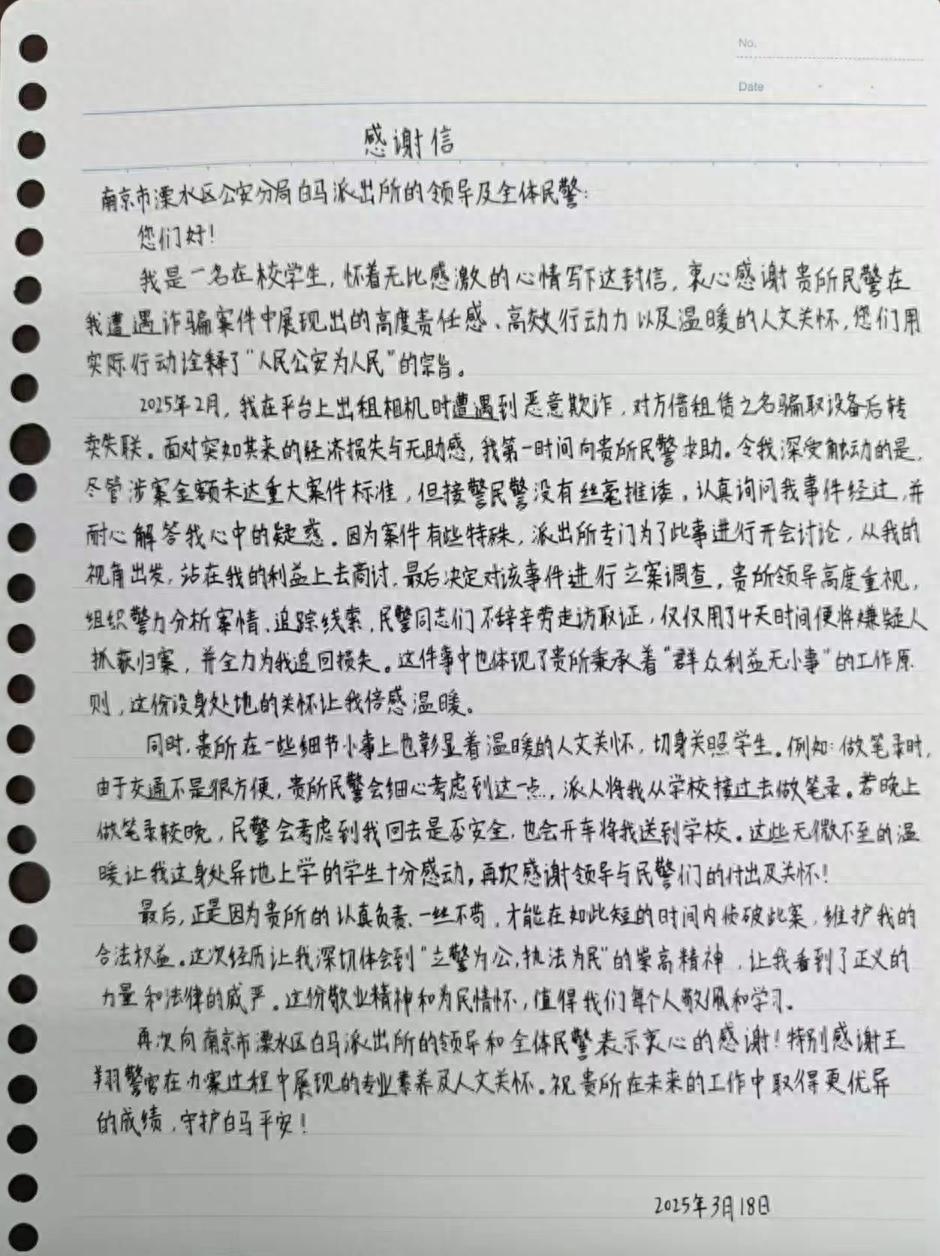 No.
Date
感谢信
南京市溧水区公安分局白马派出所的领导及全体民警：
您们好！
我是一名在校学生，怀着无比感激的心情写下这封信，衷心感谢贵所民警在
我遭遇诈骗案件中展现出的高度责任感、高效行动力以及温暖的人文关怀，您们用
实际行动诠释了“人民公安为人民”的宗旨。
2025年2月，我在平台上出租相机时遭遇到恶意欺诈，对方借租赁之名骗取设备后转
卖失联。面对突如其来的经济损失与无助感，我第一时间向贵所民警求助。令我深受触动的是，
尽管涉案金额未达重大案件标准，但接警民警没有丝毫推诿，认真询问我事件经过，并
耐心解答我心中的疑惑。因为案件有些特殊，派出所专门为了此事进行开会讨论，从我的
视角出发，站在我的利益上去商讨，最后决定对该事件进行立案调查，贵所领导高度重视，
组织警力分析案情、追踪线索，民警同志们不辞辛劳走访取证，仅仅用了4天时间便将嫌疑人
抓获归案，并全力为我追回损失。这件事中也体现了贵所秉承着“群众利益无小事”的工作原
则，这份设身处地的关怀让我倍感温暖。
同时，贵所在一些细节小事上也彰显着温暖的人文关怀，切身关照学生。例如：做笔录时，
由于交通不是很方便，贵所民警会细心考虑到这一点，派人将我从学校接过去做笔录。若晚上
做笔录较晚，民警会考虑到我回去是否安全，也会开车将我送到学校。这些无微不至的温
暖让我这身处异地上学的学生十分感动，再次感谢领导与民警们的付出及关怀！
最后，正是因为贵所的认真负责、一丝不苟，才能在如此短的时间内侦破此案，维护我的
合法权益。这次经历让我深切体会到“立警为公，执法为民”的崇高精神，让我看到了正义的
力量和法律的威严。这份敬业精神和为民情怀，值得我们每个人敬佩和学习。
再次向南京市溧水区白马派出所的领导和全体民警表示衷心的感谢！特别感谢王
翔警官在办案过程中展现的专业素养及人文关怀。祝贵所在未来的工作中取得更优异
的成绩，守护白马平安！
2025年3月18日